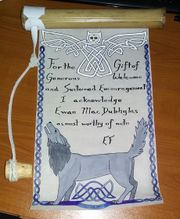 For the Gift of
Generous Welcome
and Sustained Encouragement
I acknowledge
Ewan Mac Dubhghlas
as most worthy of note